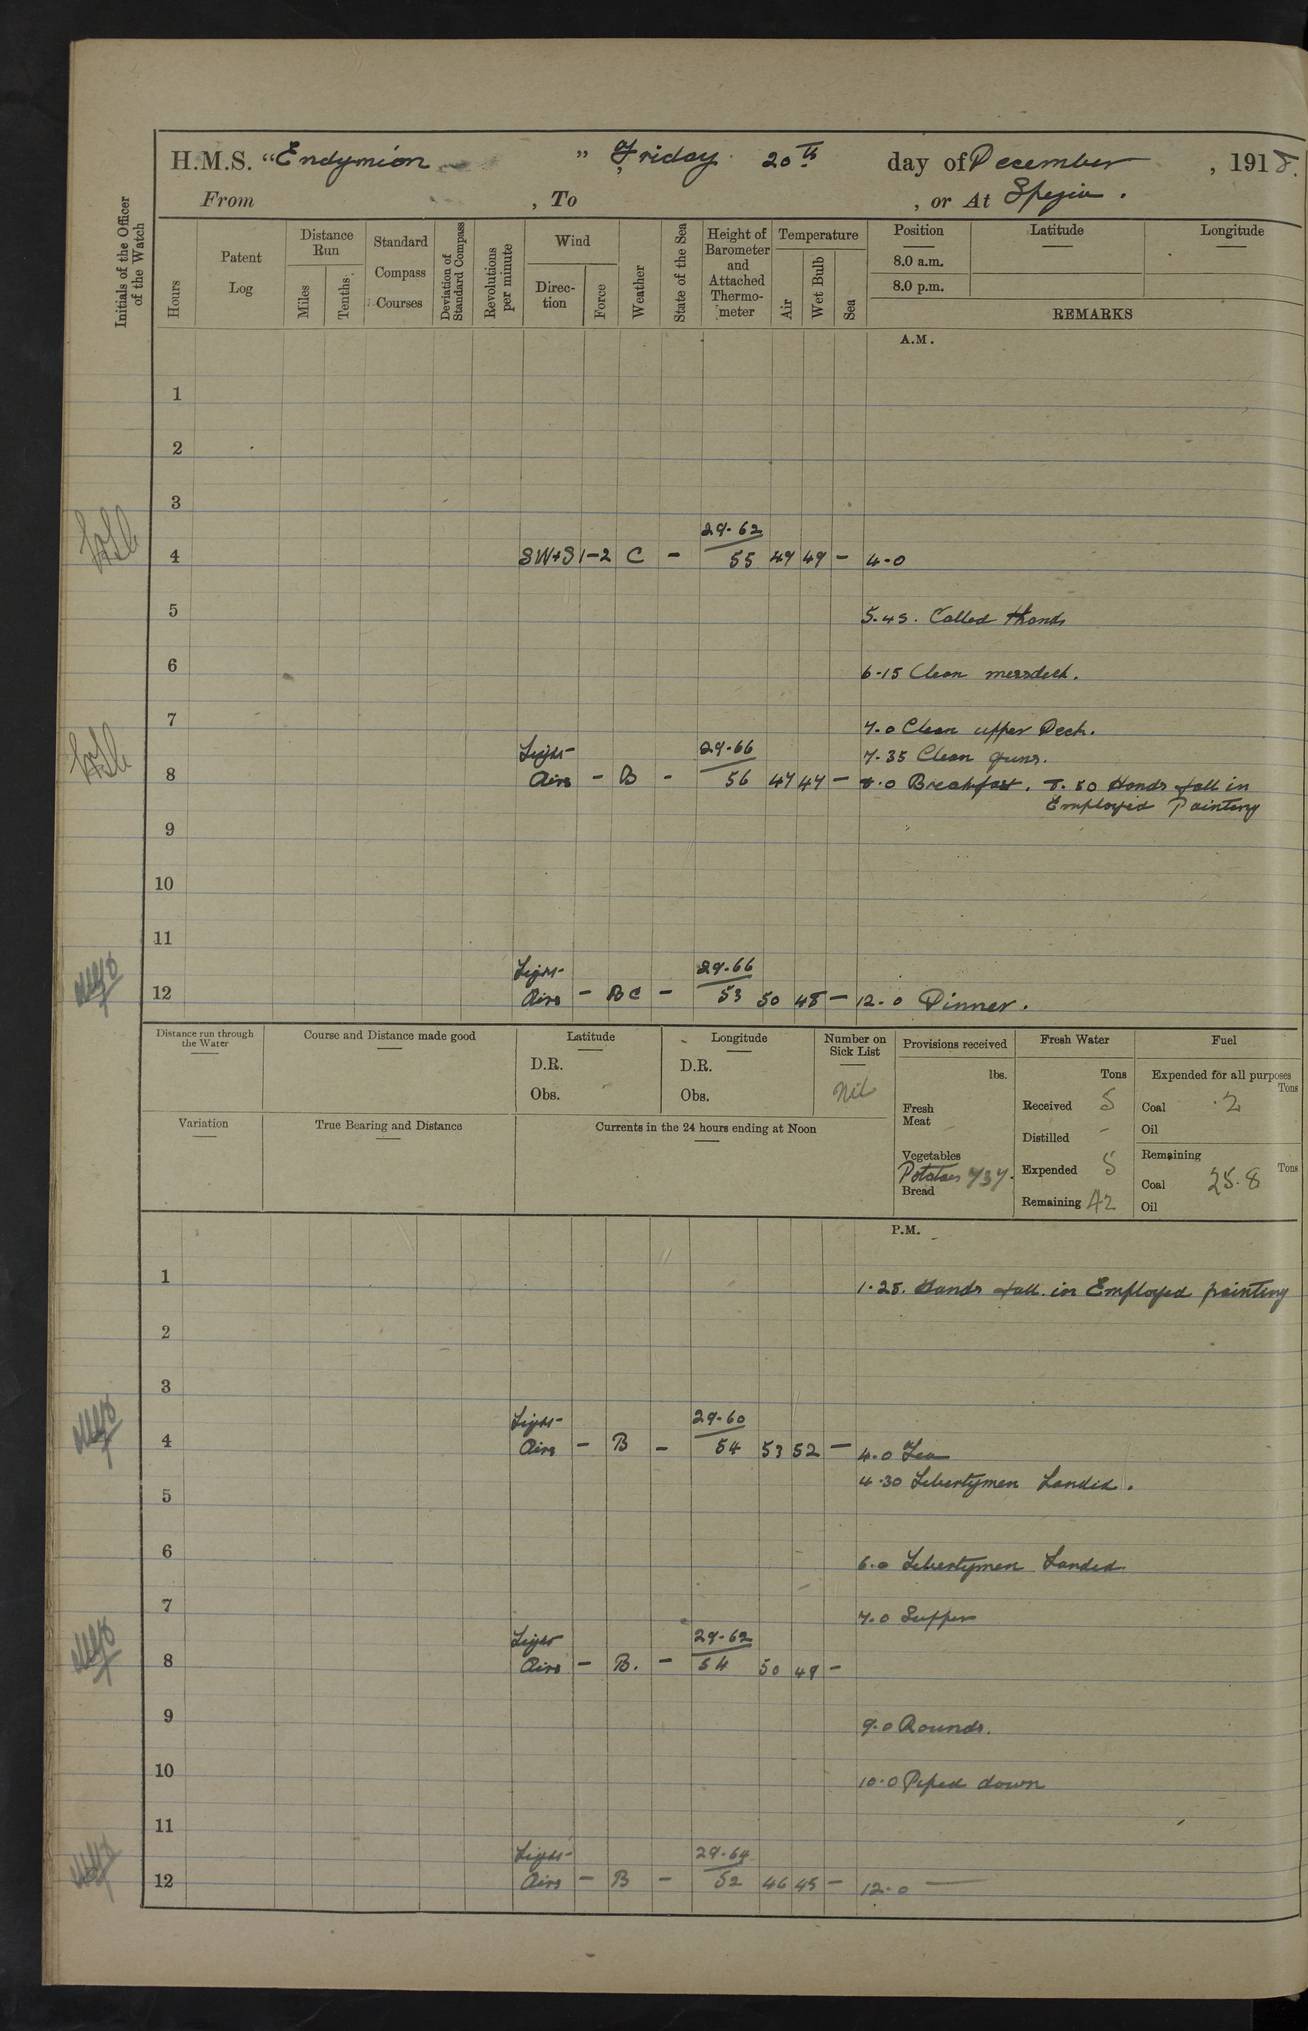 H.M.S. "Endymion" Friday 20th day of December, 1918.
From , To , or At Spezia.
Initials of the Officer of the Watch
Hours
Patent Log
Distance Run
Miles
Tenths
Standard Compass Courses
Deviation of Standard Compass
Revolutions per minute
Wind
Direc-tion
Force
Weather
State of the Sea
Height of Barometer and Attached Thermo-meter
Temperature
Air
Wet Bulb
Sea
Position
8.0 a.m.
8.0 p.m.
Latitude
Longitude
REMARKS
A.M.
1
2
3
29.62
4 SW+S 1-2 C - 55 49 49 - 4.0
5 5.45. Called Hands
6 6.15 Clean messdeck.
7 7.0 Clean upper Deck.
Light 29.66 7.35 Clean guns.
8 Airs - B - 56 47 47 - 8.0 Breakfast. 8.50 Hands fall in
Employed Painting
9
10
11
Light 29.66
12 Airs - BC - 53 50 48 - 12.0 Dinner.
Distance run through the Water
Course and Distance made good
Latitude
D.R.
Obs.
Longitude
D.R.
Obs.
Number on Sick List
Nil
Provisions received
lbs.
Fresh Meat
Vegetables
Potatoes 737.
Bread
Fresh Water
Tons
Received 5
Distilled -
Expended 5
Remaining 42
Fuel
Expended for all purposes
Tons
Coal .2
Oil
Remaining
Tons
Coal 25.8
Oil
Variation
True Bearing and Distance
Currents in the 24 hours ending at Noon
P.M.
1 1.25. Hands fall in Employed painting
2
3
Light 29.60
4 Airs - B - 54 53 52 - 4.0 Tea
4.30 Libertymen Landed.
5
6 6.0 Libertymen Landed
7 7.0 Supper
Light 29.62
8 Airs - B. - 54 50 49 -
9 9.0 Rounds.
10 10.0 Piped down
11
Light 29.64
12 Airs - B - 52 46 45 - 12.0 —